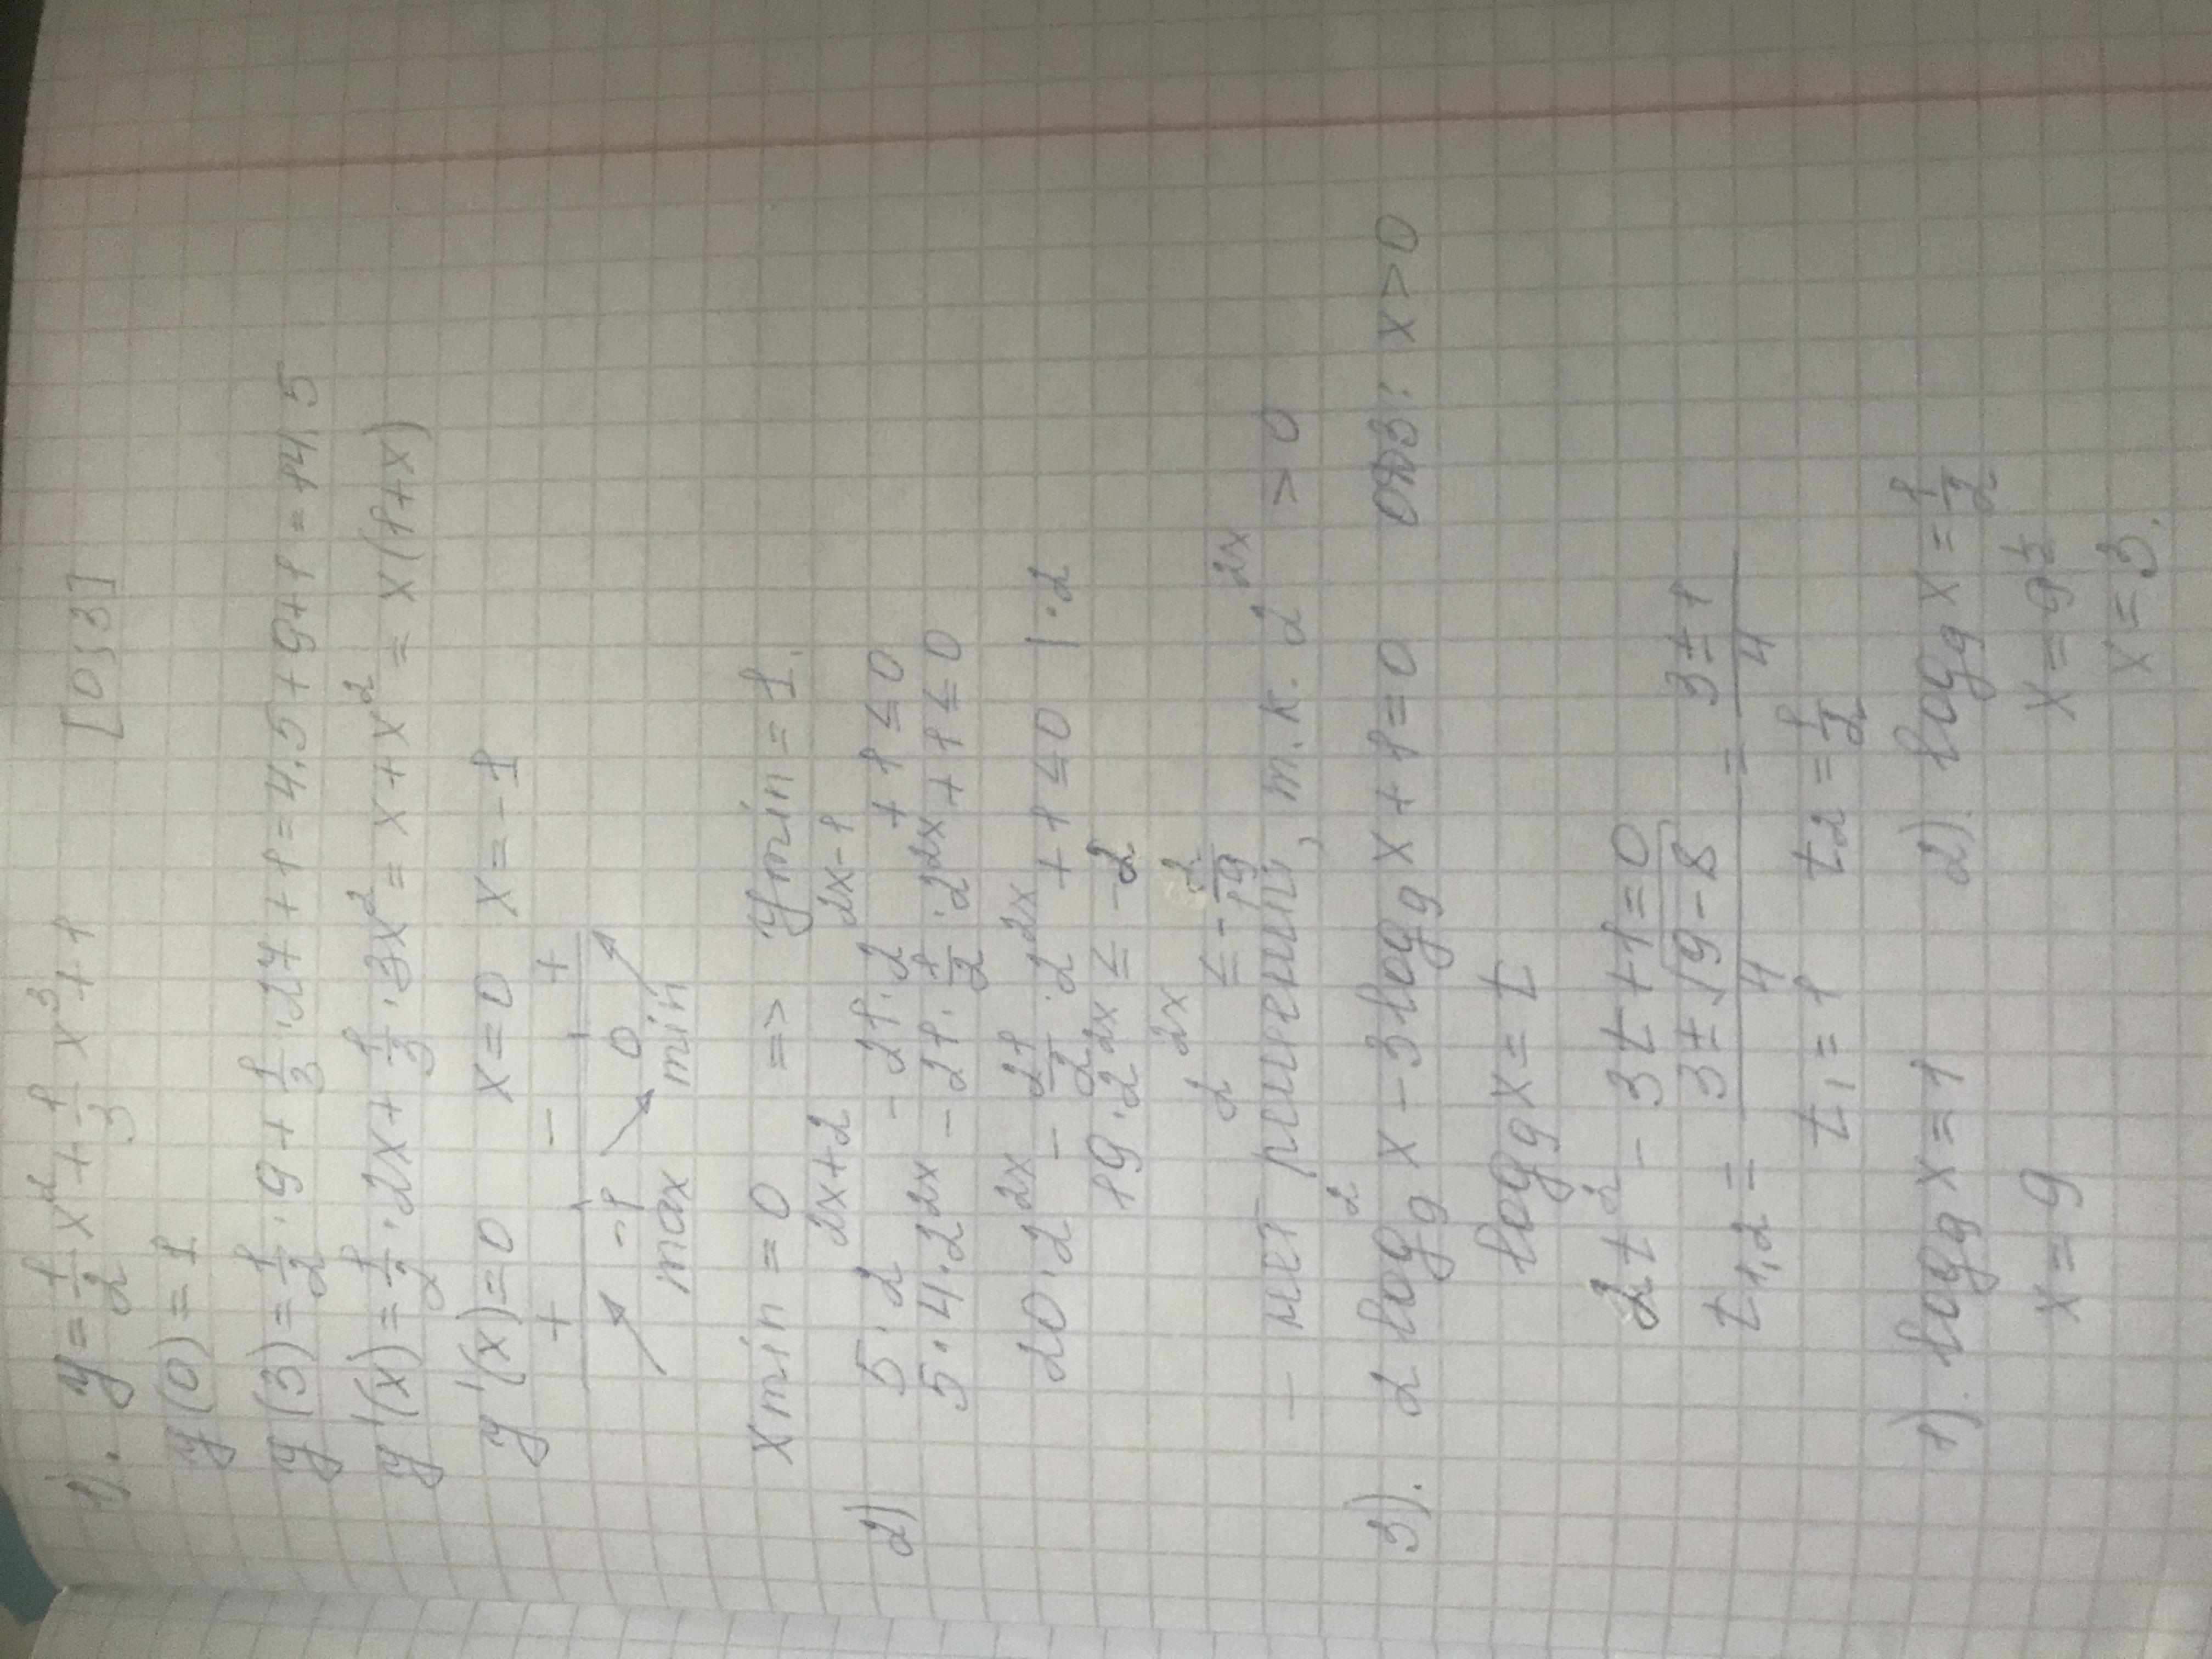 1). y = 1/2 x² + 1/3 x³ + 1 [0; 3]
y(0) = 1
y(3) = 1/2 · 9 + 1/3 · 27 + 1 = 4,5 + 9 + 1 = 14,5
y'(x) = 1/2 · 2x + 1/3 · 3x² = x + x² = x(1+x)
y'(x) = 0 x = 0 x = -1
+ - +
-1 0
max min
xmin = 0 => ymin = 1.
2) 5 · 2^(2x+2) - 21 · 2^(2x-1) + 1 ≤ 0
5 · 4 · 2^(2x) - 21 · 1/2 · 2^(2x) + 1 ≤ 0
20 · 2^(2x) - 21/2 · 2^(2x) + 1 ≤ 0 | · 2
19 · 2^(2x) ≤ -2
2^(2x) ≤ -2/19
- нет решений, т.к. 2^(2x) > 0
3). 2 log₉² x - 3 log₉ x + 1 = 0 ОДЗ: x > 0
log₉ x = t
2t² - 3t + 1 = 0
t₁,₂ = (3 ± √(9-8))/4 = (3 ± 1)/4
t₁ = 1 t₂ = 1/2
1). log₉ x = 1 2). log₉ x = 1/2
x = 9 x = 9^(1/2)
x = 3.